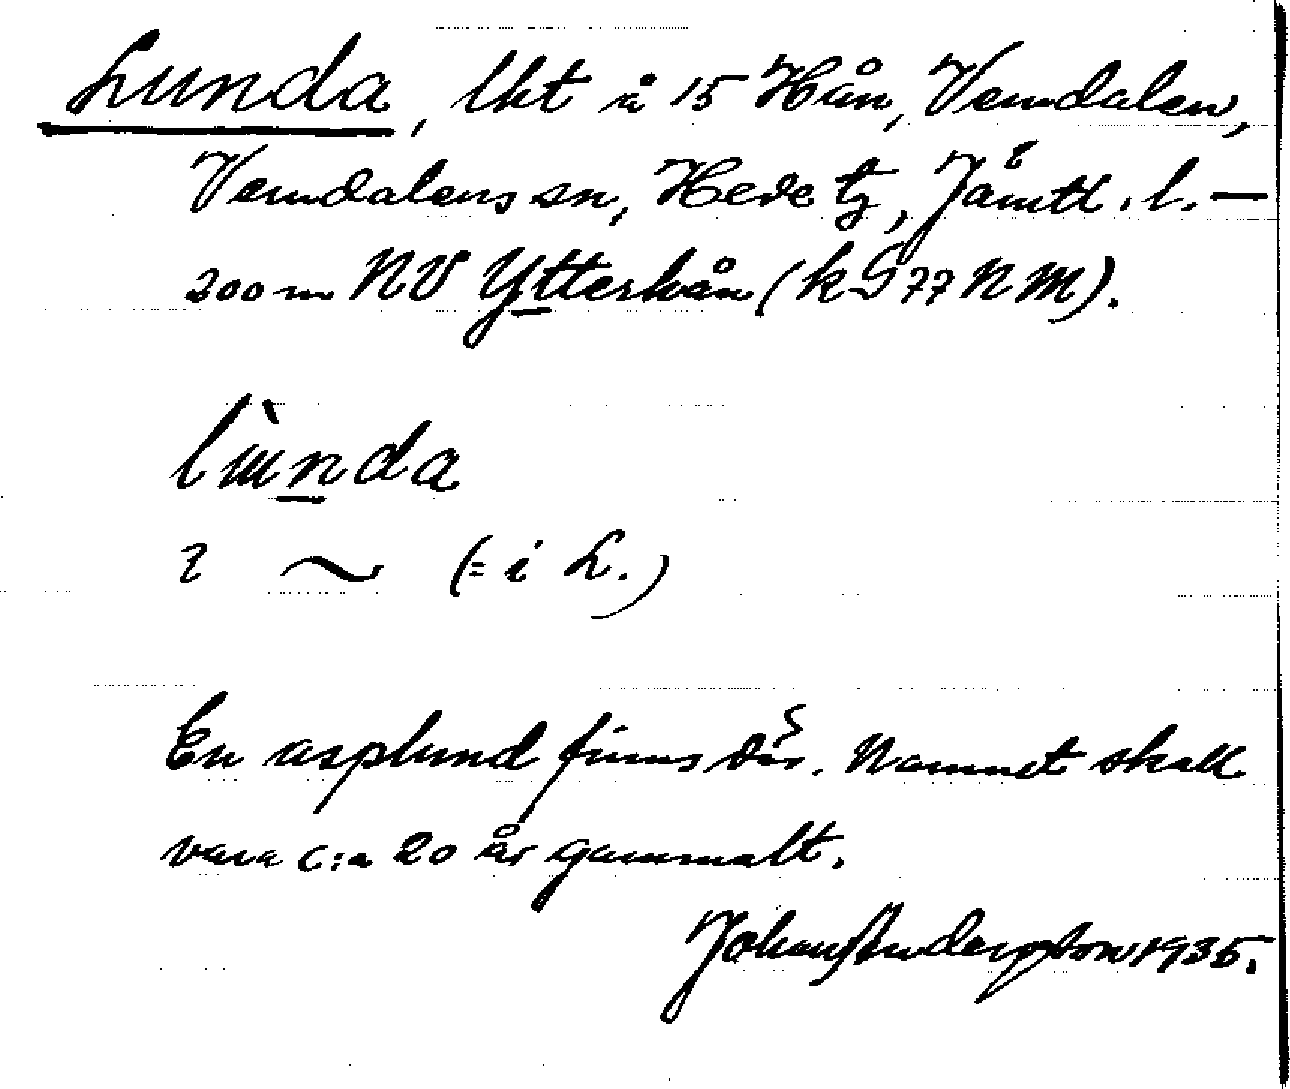 Lunda, lht å 15 Hån, Vemdalen,
Vemdalens sn, Hede tg, Jämtl. l. —
300 m NV Ytterhån (k S 77 N M).
lùnda
i ~ (= i L.)
En asplund finns där. Namnet skall
vara c:a 20 år gammalt.
Johan Anderson 1935.